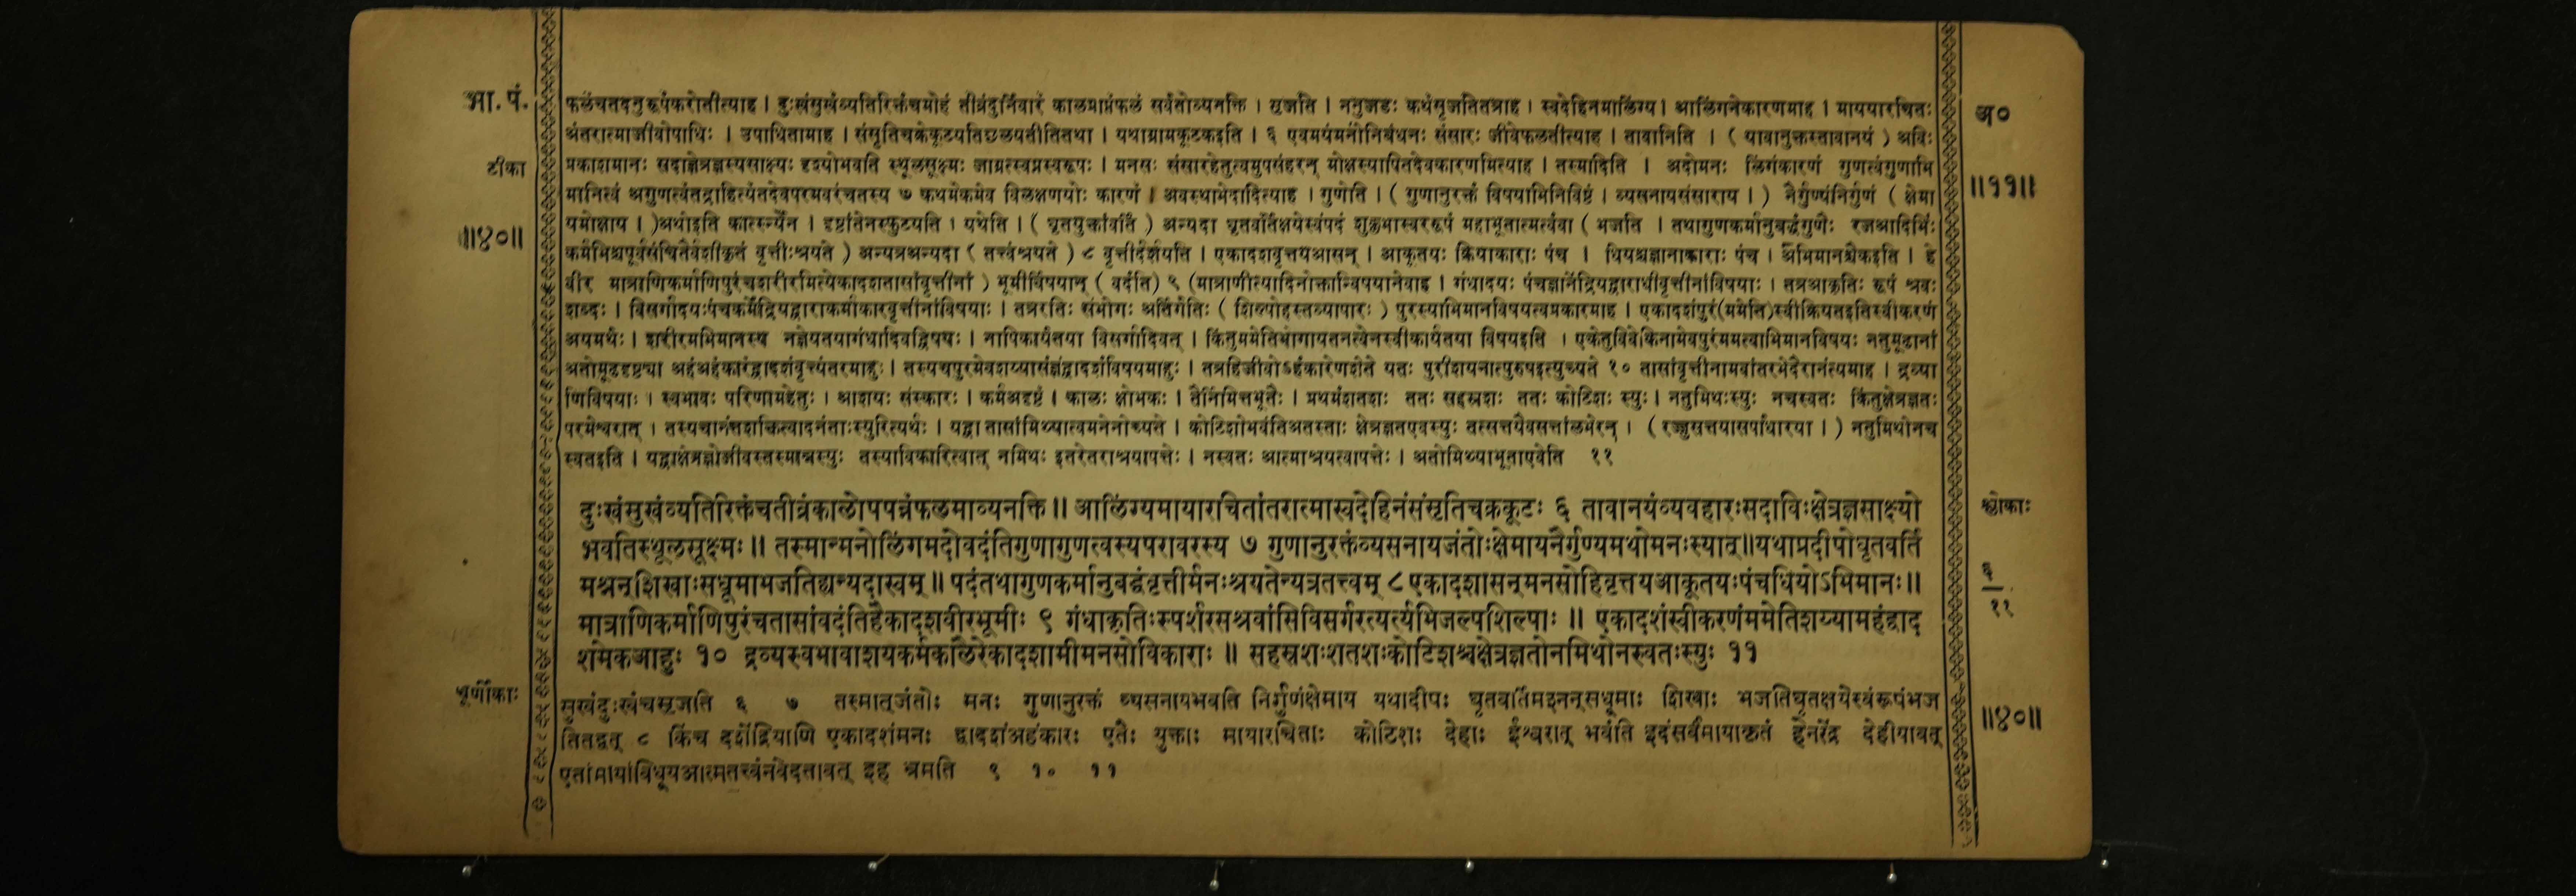 भा. पं.
टीका
॥४०॥
फलंचतदनुरूपंकरोतीत्याह । दुःखंसुखंव्यतिरिक्तंचमोहं तीव्रंदुर्निवारं कालप्राप्तंफलं सर्वतोव्यनक्ति । सृजति । ननुजडः कथंसृजतितत्राह । स्वदेहिनमालिंग्य । आलिंगनेकारणमाह । माययारचितः
अंतरात्माजीवोपाधिः । उपाधितामाह । संसृतिचक्रेकूटयतिछलयतीतितथा । यथाग्रामकूटकइति । ६ एवमयंमनोनिबंधनः संसारः जीवेफलतीत्याह । तावानिति । ( यावानुक्तस्तावानयं ) अविः
प्रकाशमानः सदाक्षेत्रज्ञस्यसाक्ष्यः दृश्योभवति स्थूलसूक्ष्मः जाग्रत्स्वप्नस्वरूपः । मनसः संसारहेतुत्वमुपसंहरन् मोक्षस्यापितदेवकारणमित्याह । तस्मादिति । अदोमनः लिंगंकारणं गुणत्वंगुणाभि
मानित्वं अगुणत्वंतद्राहित्यंतदेवपरमवरंचतस्य ७ कथमेकमेव विलक्षणयोः कारणं । अवस्थाभेदादित्याह । गुणेति । ( गुणानुरक्तं विषयाभिनिविष्टं । व्यसनायसंसाराय । ) नैर्गुण्यंनिर्गुणं ( क्षेमा
यमोक्षाय । )अथोइति कात्स्न्येन । दृष्टांतेनस्फुटयति । यथेति । ( घृतयुक्तांवर्तिं ) अन्यदा घृतवर्तिक्षयेस्वंपदं शुक्लभास्वररूपं महाभूतात्मत्वंवा ( भजति । तथागुणकर्मानुबद्धंगुणैः रजआदिभिः
कर्मभिश्चपूर्वसंचितैर्वशीकृतं वृत्तीःश्रयते ) अन्यत्रअन्यदा ( तत्त्वंश्रयते ) ८ वृत्तीर्दर्शयति । एकादशवृत्तयआसन् । आकूतयः क्रियाकाराः पंच । धियश्चज्ञानाकाराः पंच । अभिमानश्चैकइति । हे
वीर मात्राणिकर्माणिपुरंचशरीरमित्येकादशतासांवृत्तीनां ) भूमीर्विषयान् ( वदंति) ९ (मात्राणीत्यादिनोक्तान्विषयानेवाह । गंधादयः पंचज्ञानेंद्रियद्वाराधीवृत्तीनांविषयाः । तत्रआकृतिः रूपं श्रवः
शब्दः । विसर्गादयःपंचकर्मेंद्रियद्वाराकर्माकारवृत्तीनांविषयाः । तत्ररतिः संभोगः अर्तिर्गतिः ( शिल्पोहस्तव्यापारः ) पुरस्याभिमानविषयत्वप्रकारमाह । एकादशंपुरं(ममेति)स्वीक्रियतइतिस्वीकरणं
अयमर्थः । शरीरमभिमानस्य नज्ञेयतयागंधादिवद्विषयः । नापिकार्यतया विसर्गादिवत् । किंतुममेतिभोगायतनत्वेनस्वीकार्यतया विषयइति । एकेतुविवेकिनामेवपुरंममत्वाभिमानविषयः नतुमूढानां
अतोमूढदृष्ट्या अहंअहंकारंद्वादशंवृत्त्यंतरमाहुः । तस्यचपुरमेवशय्यासंज्ञंद्वादशंविषयमाहुः । तत्रहिजीवोऽहंकारेणशेते यतः पुरीशयनात्पुरुषइत्युच्यते १० तासांवृत्तीनामवांतरभेदैरानंत्यमाह । द्रव्या
णिविषयाः । स्वभावः परिणामहेतुः । आशयः संस्कारः । कर्मअदृष्टं । कालः क्षोभकः । तैर्निमित्तभूतैः । प्रथमंशतशः ततः सहस्रशः ततः कोटिशः स्युः । नतुमिथःस्युः नचस्वतः किंतुक्षेत्रज्ञतः
परमेश्वरात् । तस्यचानंतशक्तित्वादनंताःस्युरित्यर्थः । यद्वा तासांमिथ्यात्वमनेनोच्यते । कोटिशोभवंतिअतस्ताः क्षेत्रज्ञतएवस्युः तत्सत्तयैवसत्तांलभेरन् । (रज्जुसत्तयासर्पाधारया । ) नतुमिथोनच
स्वतइति । यद्वाक्षेत्रज्ञोजीवस्तस्मान्नस्युः तस्याविकारित्वात् नमिथः इतरेतराश्रयापत्तेः । नस्वतः आत्माश्रयत्वापत्तेः । अतोमिथ्याभूताएवेति ११
दुःखंसुखंव्यतिरिक्तंचतीव्रंकालोपपन्नंफलमाव्यनक्ति ॥ आलिंग्यमायारचितांतरात्मास्वदेहिनंसंसृतिचक्रकूटः ६ तावानयंव्यवहारःसदाविःक्षेत्रज्ञसाक्ष्यो
भवतिस्थूलसूक्ष्मः ॥ तस्मान्मनोलिंगमदोवदंतिगुणागुणत्वस्यपरावरस्य ७ गुणानुरक्तंव्यसनायजंतोःक्षेमायनैर्गुण्यमथोमनःस्यात्॥यथाप्रदीपोघृतवर्ति
मश्नन्शिखाःसधूमाभजतिह्यन्यदास्वम् ॥ पदंतथागुणकर्मानुबद्धंवृत्तीर्मनःश्रयतेन्यत्रतत्त्वम् ८ एकादशासन्मनसोहिवृत्तयआकूतयःपंचधियोऽभिमानः॥
मात्राणिकर्माणिपुरंचतासांवदंतिहैकादशवीरभूमीः ९ गंधाकृतिःस्पर्शरसश्रवांसिविसर्गरत्यर्त्यभिजल्पशिल्पाः ॥ एकादशंस्वीकरणंममेतिशय्यामहंद्वाद
शमेकआहुः १० द्रव्यस्वभावाशयकर्मकालैरेकादशामीमनसोविकाराः ॥ सहस्रशःशतशःकोटिशश्चक्षेत्रज्ञतोनमिथोनस्वतःस्युः ११
चूर्णीकाः
सुखंदुःखंचसृजति ६ ७ तस्मात्जंतोः मनः गुणानुरक्तं व्यसनायभवति निर्गुणंक्षेमाय यथादीपः घृतवर्तिमश्नन्सधूमाः शिखाः भजतिघृतक्षयेस्वंरूपंभज
तितद्वत् ८ किंच दशेंद्रियाणि एकादशंमनः द्वादशंअहंकारः एतैः युक्ताः मायारचिताः कोटिशः देहाः ईश्वरात् भवंति इदंसर्वंमायाकृतं हेनरेंद्र देहीयावत्
एतांमायांविधूयआत्मतत्त्वंनवेदतावत् इह भ्रमति ९ १० ११
अ०
॥११॥
श्लोकाः
६
११
॥४०॥